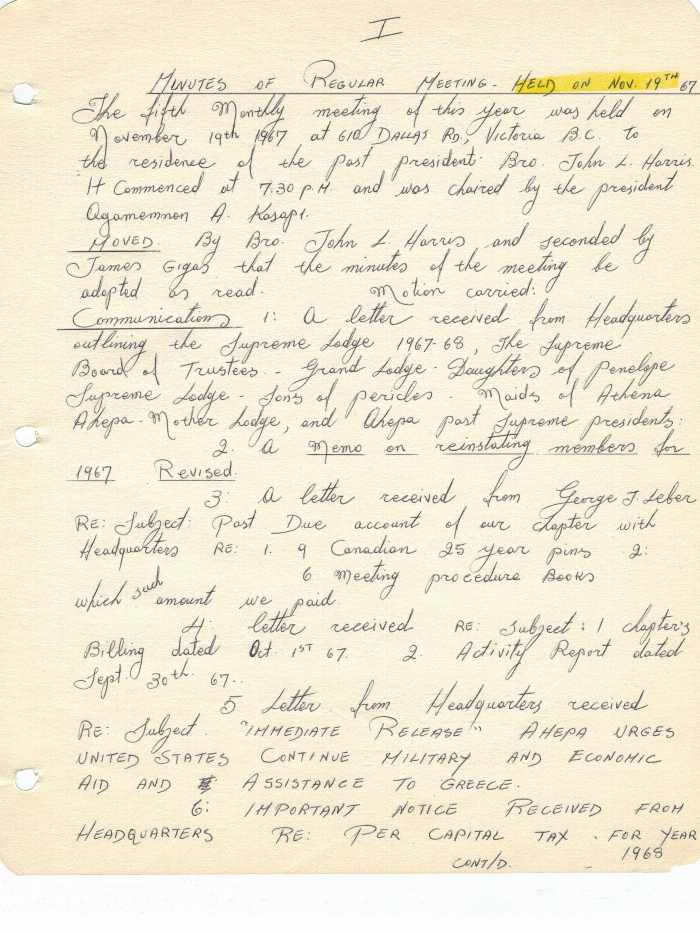 I
MINUTES OF REGULAR MEETING - HELD ON NOV. 19TH 67
The fifth Monthly meeting of this year was held on
November 19th 1967 at 610 DALLAS RD., Victoria B.C. to
the residence of the past president Bro. John L. Harris.
It Commenced at 7:30 P.M. and was chaired by the president
Agamemnon A. Kasapi.
MOVED. By Bro. John L. Harris, and seconded by
James Gigas that the minutes of the meeting be
adopted as read. Motion carried:
Communications 1: A letter received from Headquarters
outlining the Supreme Lodge 1967-68, The Supreme
Board of Trustees. - Grand Lodge - Daughters of Penelope
Supreme Lodge - Sons of pericles. - Maids of Athena
Ahepa - Mother Lodge, and Ahepa past Supreme presidents:
2. A Memo on reinstating members for
1967 Revised
3: A letter received from George J. Leber
RE: Subject: Past Due account of our chapter with
Headquarters RE: 1. 9 Canadian 25 year pins 2:
6 Meeting procedure Books
which such amount we paid.
4: letter received RE: Subject: 1 chapter's
Billing dated Oct. 1ST 67. 2. Activity Report dated
Sept. 30th 67..
5 Letter from Headquarters received
RE: Subject "IMMEDIATE RELEASE" AHEPA URGES
UNITED STATES CONTINUE MILITARY AND ECONOMIC
AID AND ASSISTANCE TO GREECE.
6: IMPORTANT NOTICE RECEIVED FROM
HEADQUARTERS RE: PER CAPITAL TAX. FOR YEAR
CONT/D. 1968